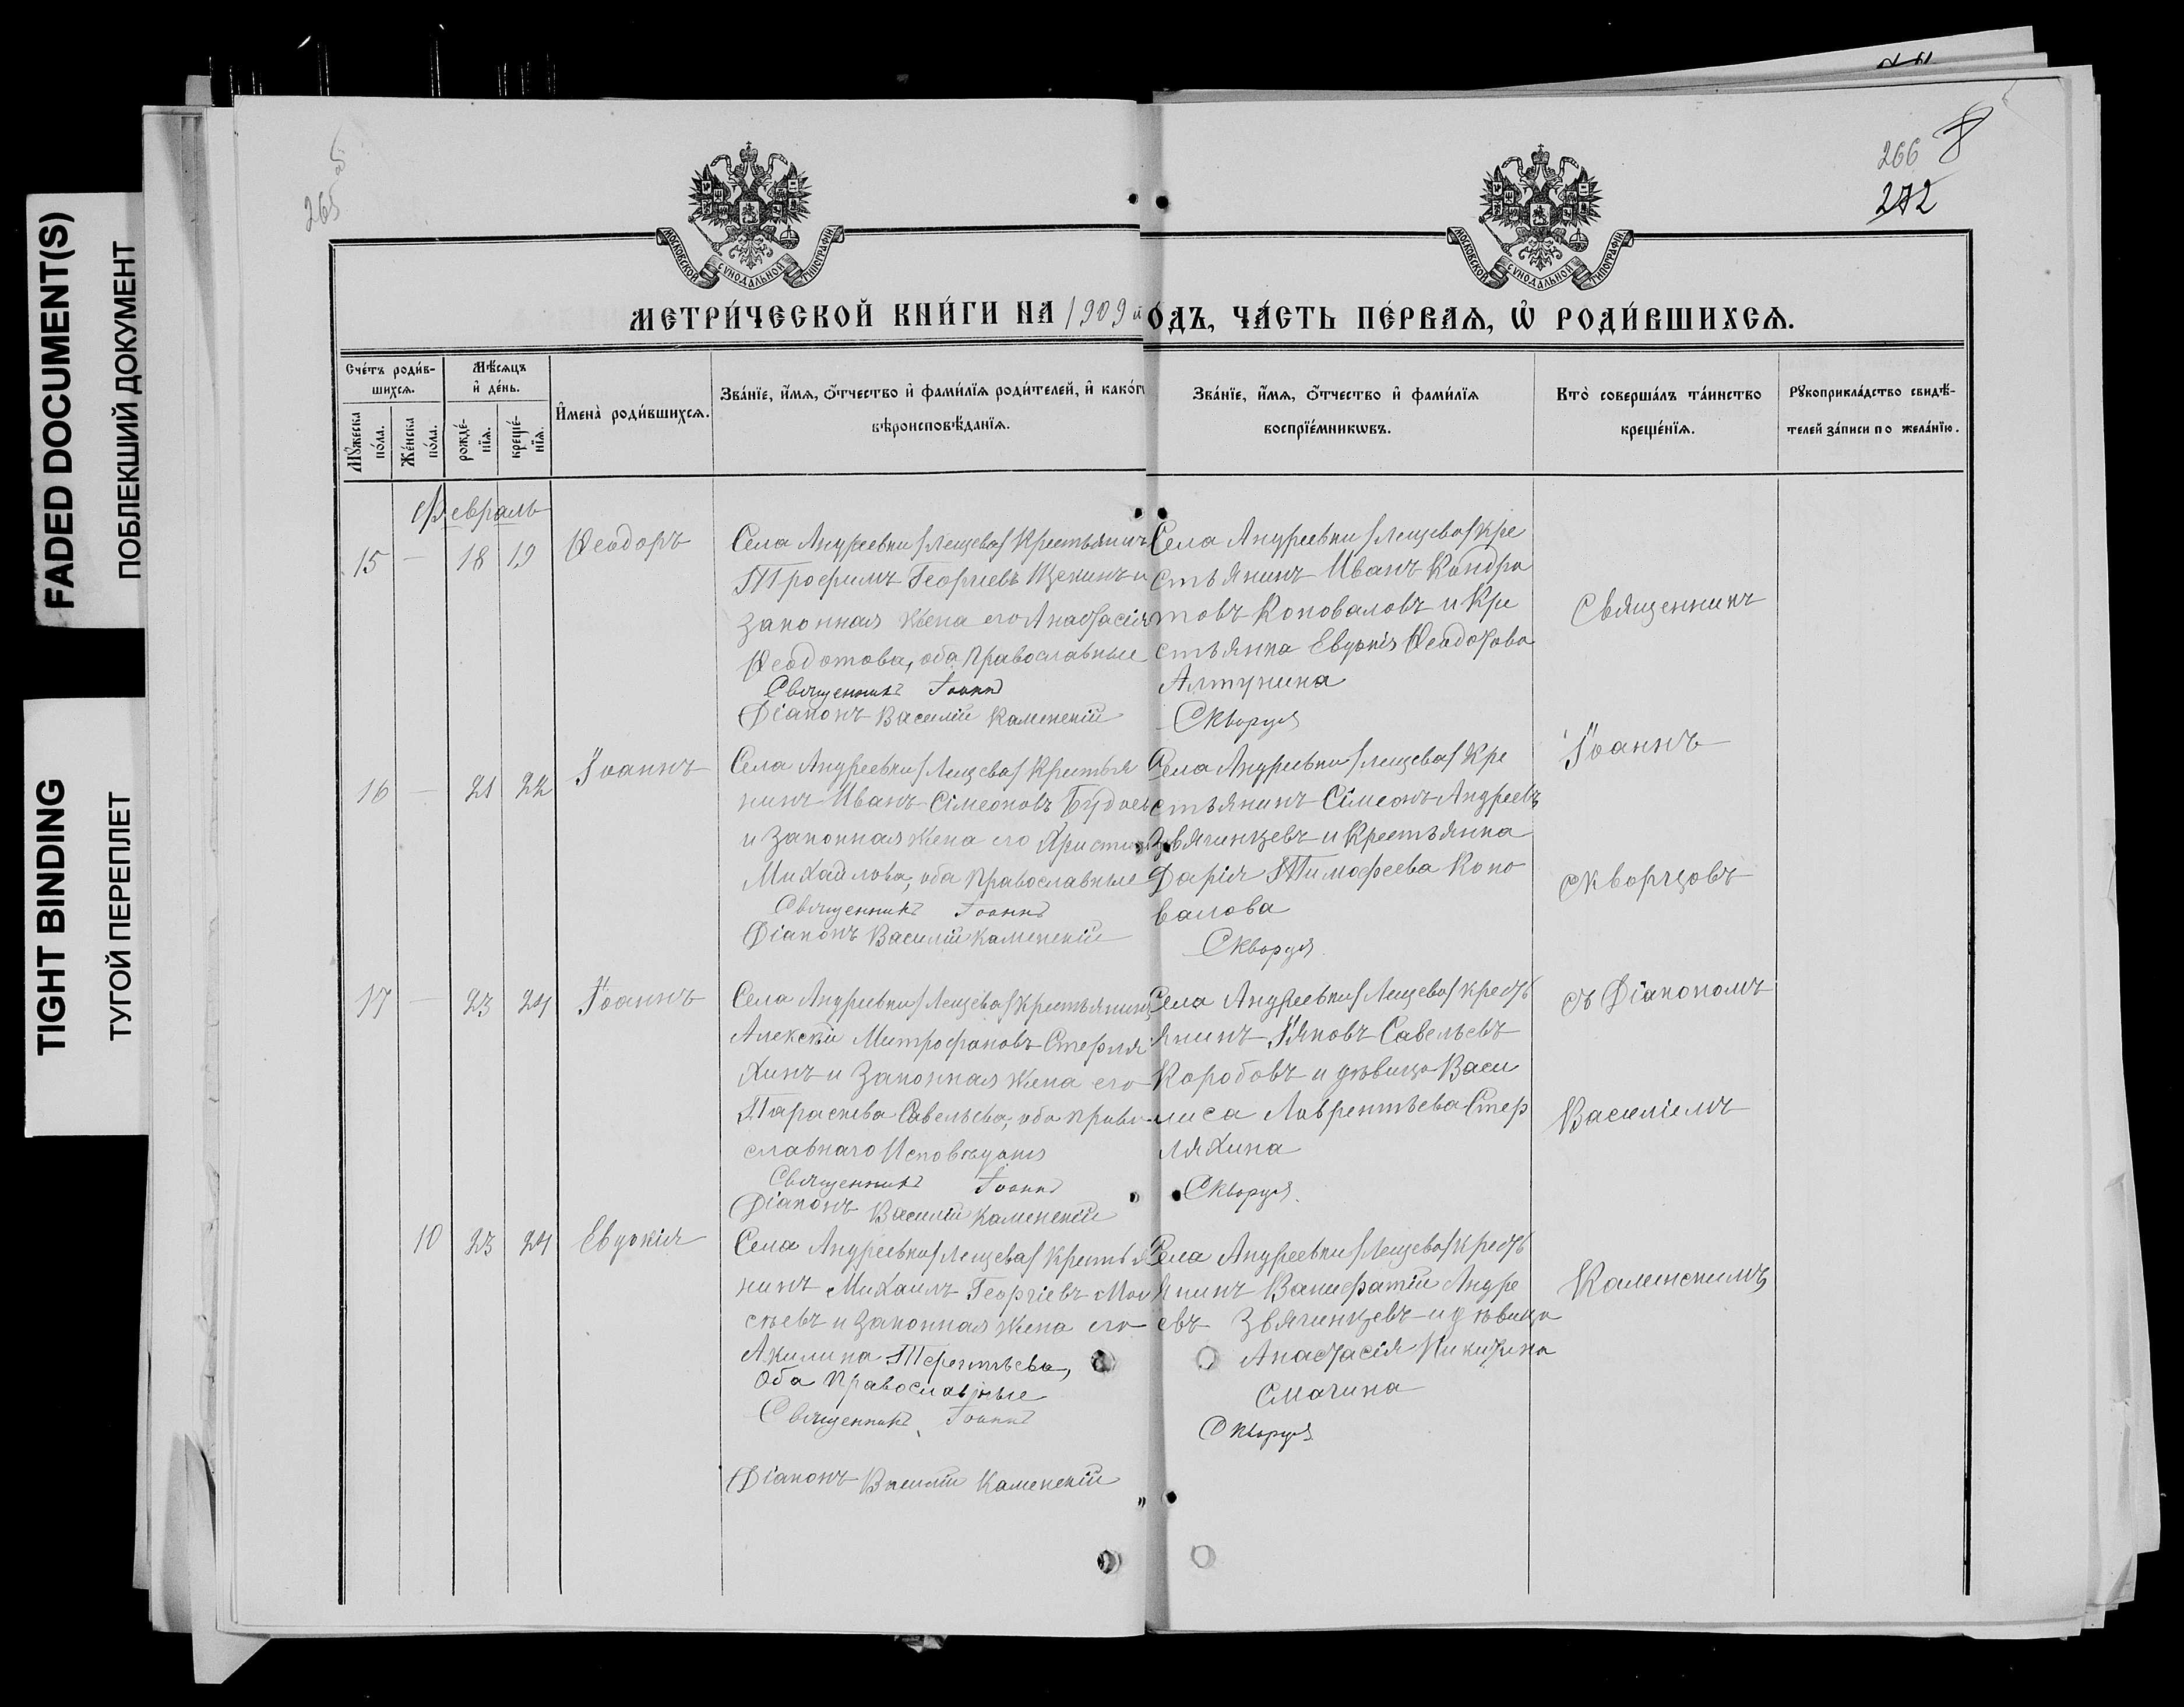 FADED DOCUMENT(S)
ПОБЛЕКШИЙ ДОКУМЕНТ
TIGHT BINDING
ТУГОЙ ПЕРЕПЛЕТ
265
об
266
8
272
МОСКОВСКОЙ СѴНОДАЛЬНОЙ ТИПОГРАФІИ
МОСКОВСКОЙ СѴНОДАЛЬНОЙ ТИПОГРАФІИ
МЕТРИ́ЧЕСКОЙ КНИ́ГИ НА 1909 й
О́ДЪ, ЧА́СТЬ ПЕ́РВАѦ, Ѡ҆ РОДИ́ВШИХСѦ.
Сче́тъ роди́в-
шихсѧ.
Мꙋ́жеска
по́ла.
Же́нска
по́ла.
Мѣ́сѧцъ
и҆ де́нь.
рожде́-
нїѧ.
креще́-
нїѧ.
И҆мена̀ роди́вшихсѧ.
Зва́нїе, и҆́мѧ, ѻ҆́тчество и҆ фами́лїѧ роди́телей, и҆ како́гѡ
вѣроисповѣ́данїѧ.
Зва́нїе, и҆́мѧ, ѻ҆́тчество и҆ фами́лїѧ
воспрїе́мникѡвъ.
Кто̀ соверша́лъ та́инство
креще́нїѧ.
Рꙋкоприкла́дство свидѣ́-
телей за́писи по жела́нїю.
Февраль
15 — 18 19
Ѳеодоръ
Села Андреевки /Лещева/ Крестьянинъ
Трофимъ Георгіевъ Щекинъ и
законная жена его Анастасія
Ѳеодотова, оба православные
Священникъ Іоаннъ
Діаконъ Василій Каменскій
Села Андреевки /Лещева/ Кре
стьянинъ Иванъ Кондра
товъ Коноваловъ и Кре
стьянка Евдокія Ѳеодотова
Алтунина
Скворцов
16 — 21 22
Іоаннъ
Села Андреевки /Лещева/ Крестья
нинъ Иванъ Сімеоновъ
и законная жена его
Михайлова, оба православные
Священникъ Іоаннъ
Діаконъ Василій Каменскій
Села Андреевки /Лещева/ Кре
стьянинъ Сімеонъ Андреевъ
Звягинцевъ и Крестьянка
Дарія Тимофеева Коно
валова
Скворцов
17 — 23 24
Іоаннъ
Села Андреевки /Лещева/ Крестьянинъ
Алексѣй Митрофановъ Стерля
хинъ и законная жена его
Параскева Савельева, оба право
славнаго Исповѣданія
Священникъ Іоаннъ
Діаконъ Василій Каменскій
Села Андреевки /Лещева/ крестъ
янинъ Іяковъ Савельевъ
Коробовъ и дѣвица Васи
лиса Лаврентьева Стер
ляхина
Скворцов.
10 23 24
Евдокія
Села Андреевки /Лещева/ Крестья
нинъ Михаилъ Георгіевъ Мои
сѣевъ и законная жена его
Акилина Терентьева,
Оба Православные
Священникъ Іоаннъ
Діаконъ Василій Каменскій
Села Андреевки /Лещева/ крестъ
янинъ Ванифатій Андре
евъ Звягинцевъ и дѣвица
Анастасія Никитина
Смагина
Скворцов
Священникъ
Іоаннъ
Скворцовъ
съ Діакономъ
Василіемъ
Каменскимъ